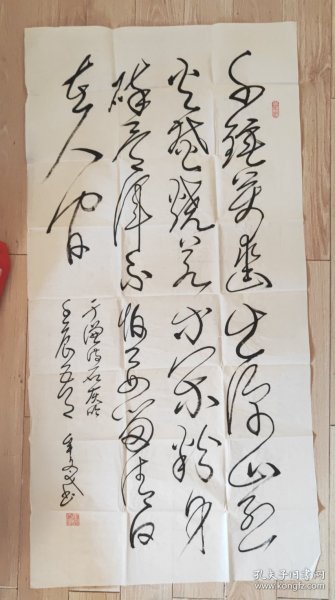 千锤万凿出深山烈
火焚烧若等闲粉身
碎骨浑不怕要留清白
在人间
于谦诗石灰吟
壬辰
书
孔夫子旧书网